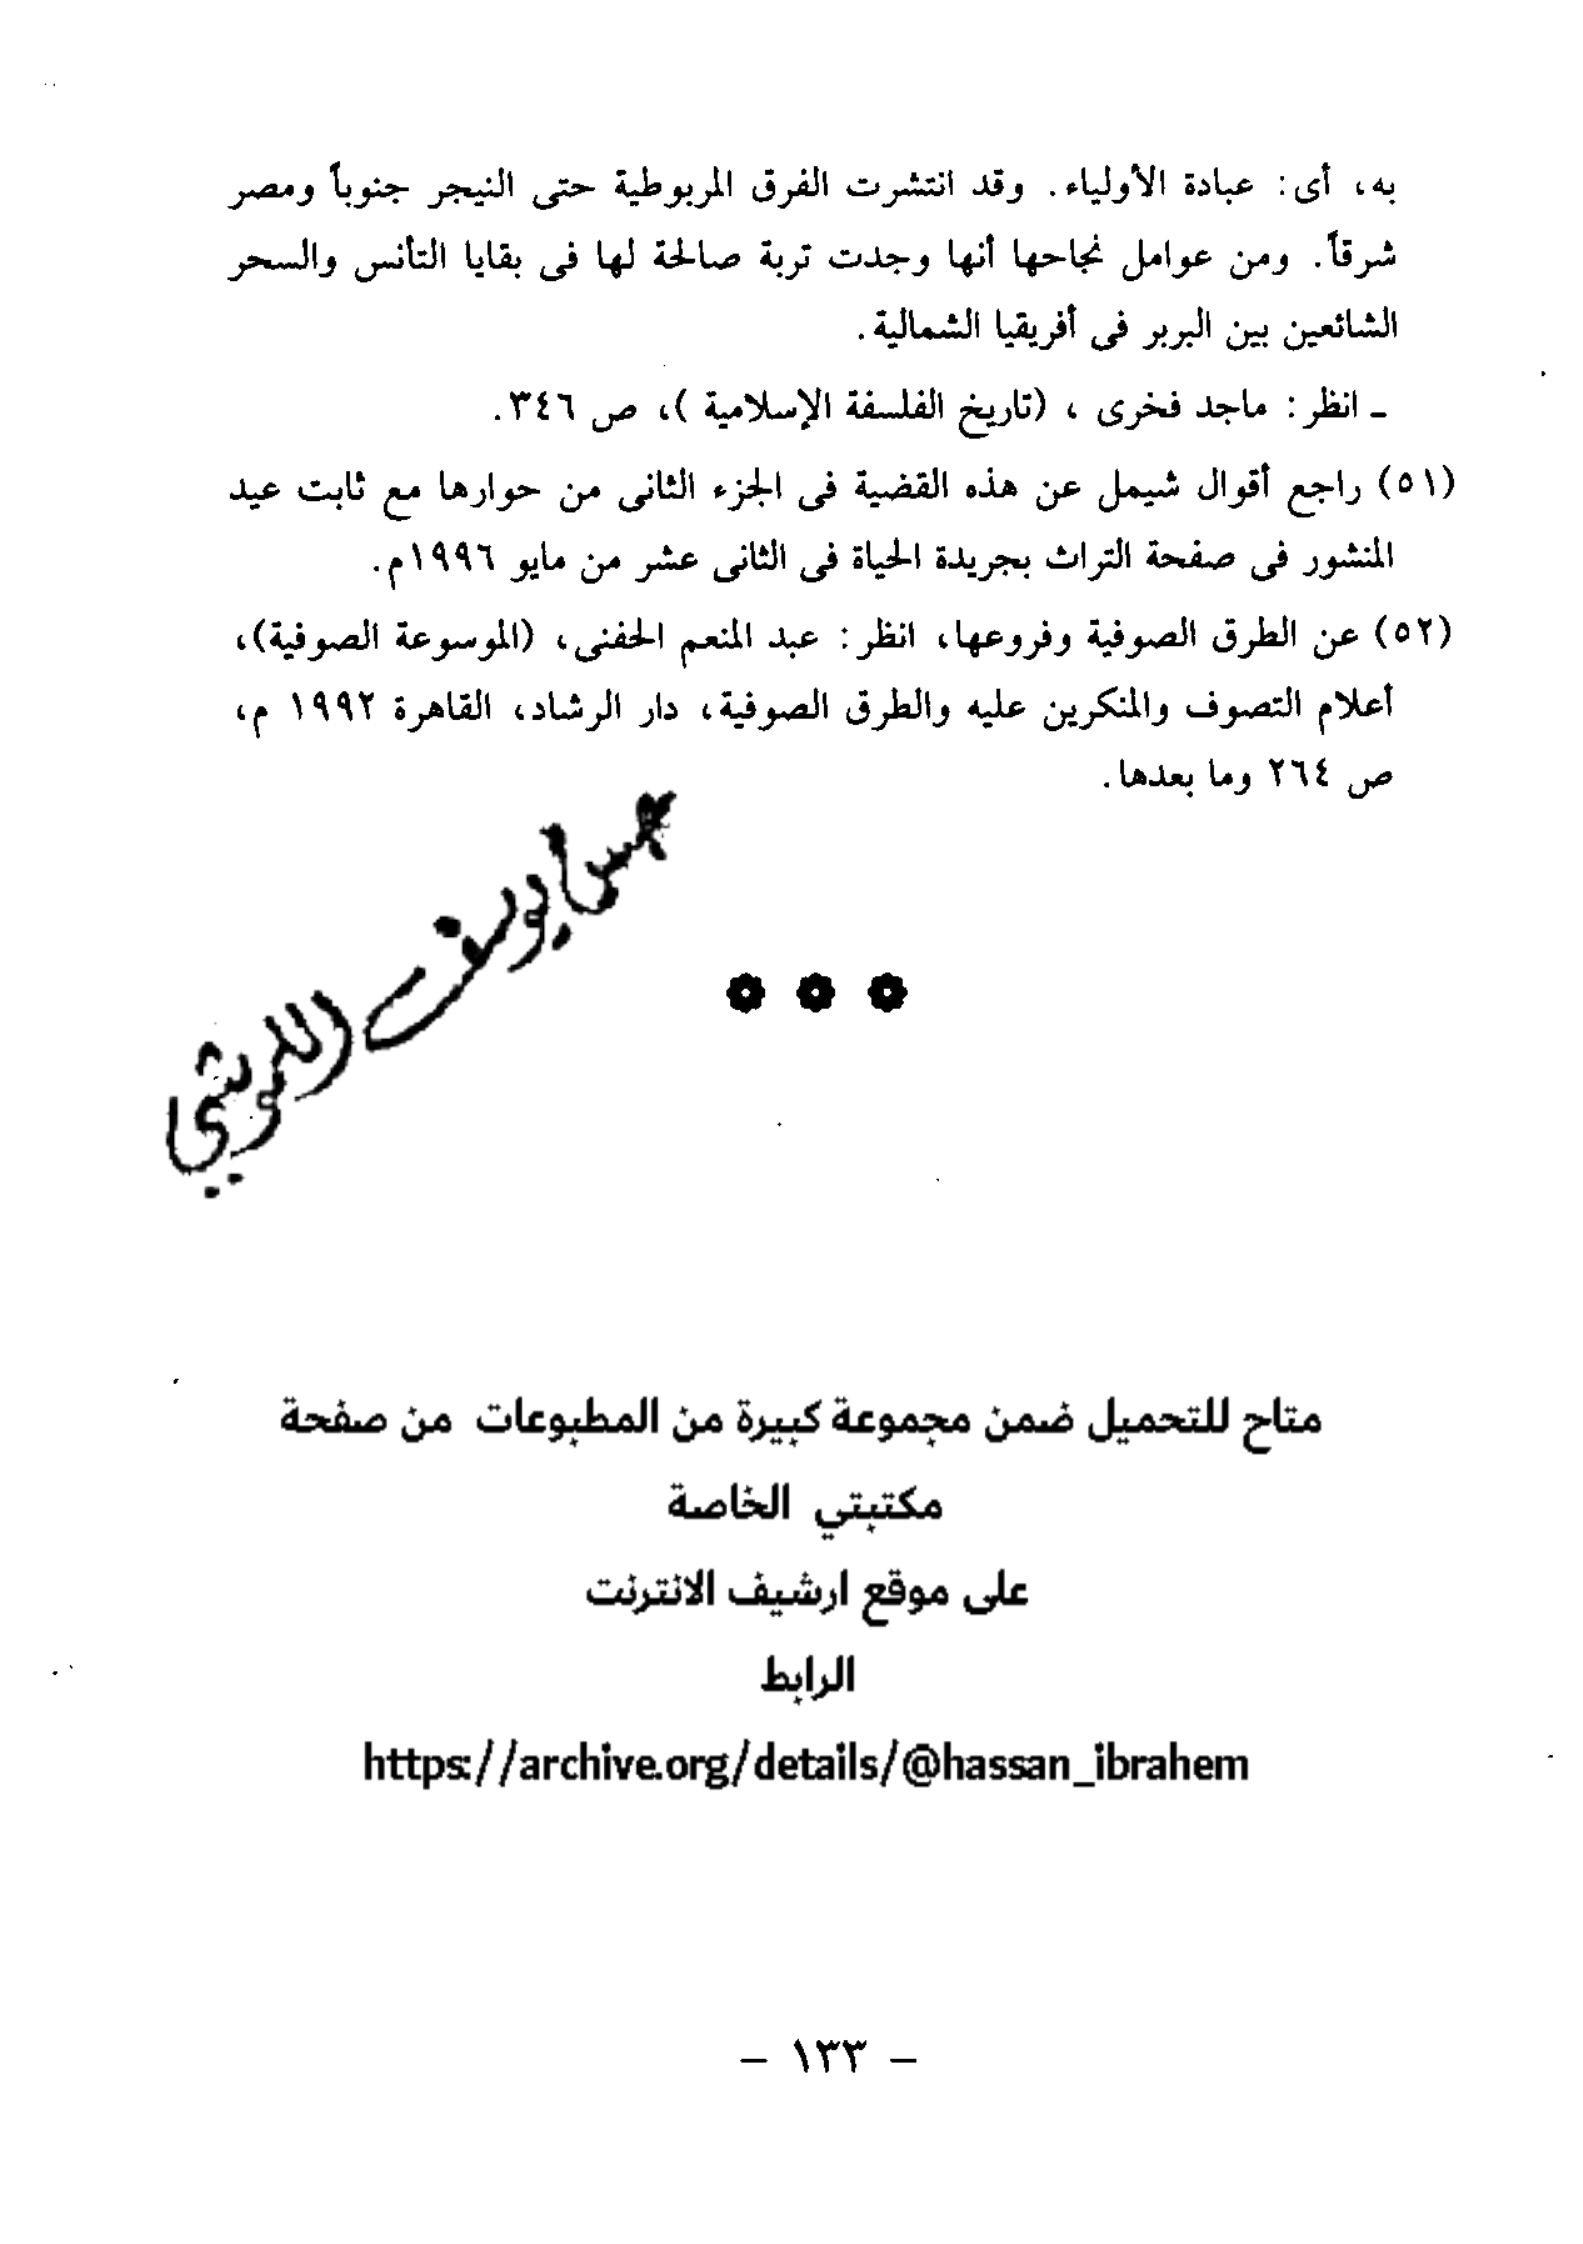 به، أى: عبادة الأولياء. وقد انتشرت الفرق المربوطية حتى النيجر جنوباً ومصر
شرقاً. ومن عوامل نجاحها أنها وجدت تربة صالحة لها فى بقايا التأنس والسحر
الشائعين بين البربر فى أفريقيا الشمالية.
ـ انظر: ماجد فخرى ، (تاريخ الفلسفة الإسلامية )، ص ٣٤٦.
(٥١) راجع أقوال شيمل عن هذه القضية فى الجزء الثانى من حوارها مع ثابت عيد
المنشور فى صفحة التراث بجريدة الحياة فى الثانى عشر من مايو ١٩٩٦م.
(٥٢) عن الطرق الصوفية وفروعها، انظر: عبد المنعم الحفنى، (الموسوعة الصوفية)،
أعلام التصوف والمنكرين عليه والطرق الصوفية، دار الرشاد، القاهرة ١٩٩٢ م،
ص ٢٦٤ وما بعدها.
يوسف
متاح للتحميل ضمن مجموعة كبيرة من المطبوعات من صفحة
مكتبتي الخاصة
على موقع ارشيف الانترنت
الرابط
https://archive.org/details/@hassan_ibrahem
– ١٣٣ –